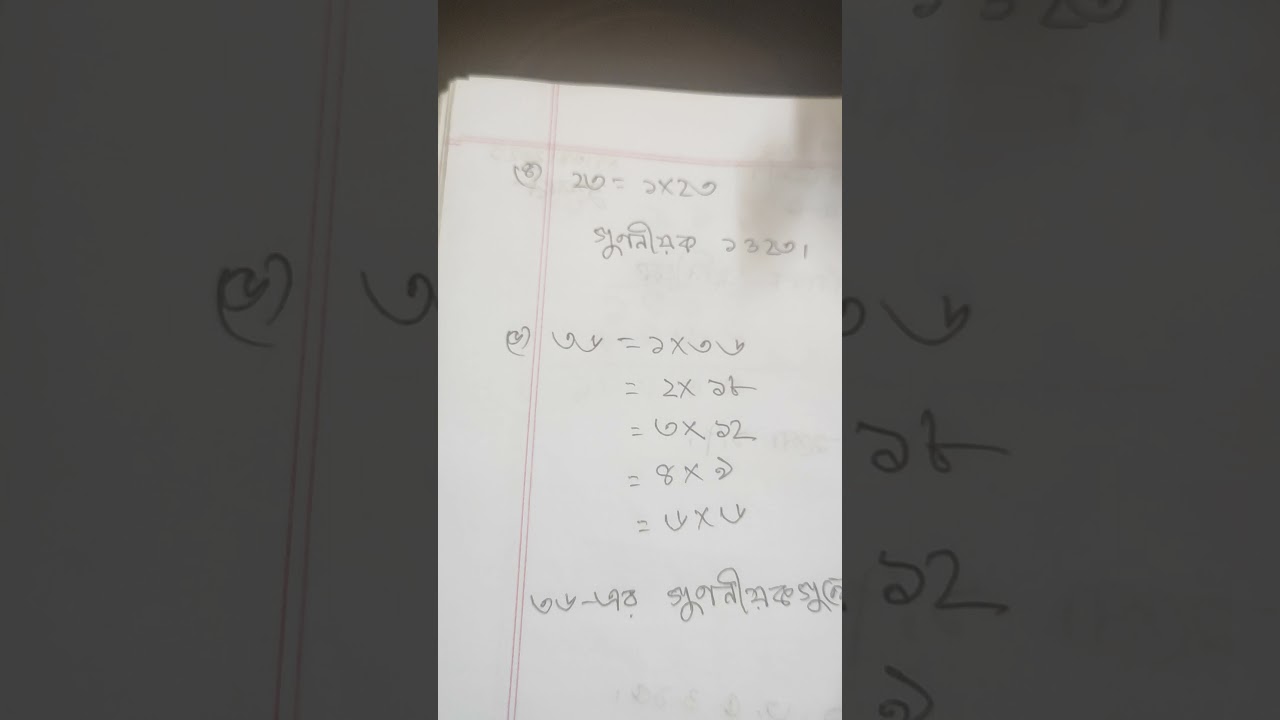 ২৩ = ১×২৩
গুণনীয়ক ১ ও ২৩।
৩৬ = ১×৩৬
= ২× ১৮
= ৩× ১২
= ৪ × ৯
= ৬×৬
৩৬-এর গুণনীয়কগুলো